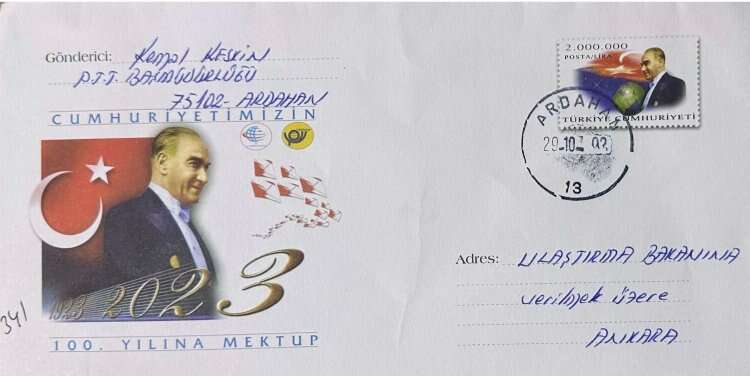 Gönderici: Kemal KESKİN
P.T.T. BAŞMÜDÜRLÜĞÜ
75102-ARDAHAN
CUMHURİYETİMİZİN
1923 2023
100. YILINA MEKTUP
341
2.000.000
POSTA/LİRA
TÜRKİYE CUMHURİYETİ
ARDAHAN
29.10
13
Adres: ULAŞTIRMA BAKANINA
verilmek üzere
ANKARA